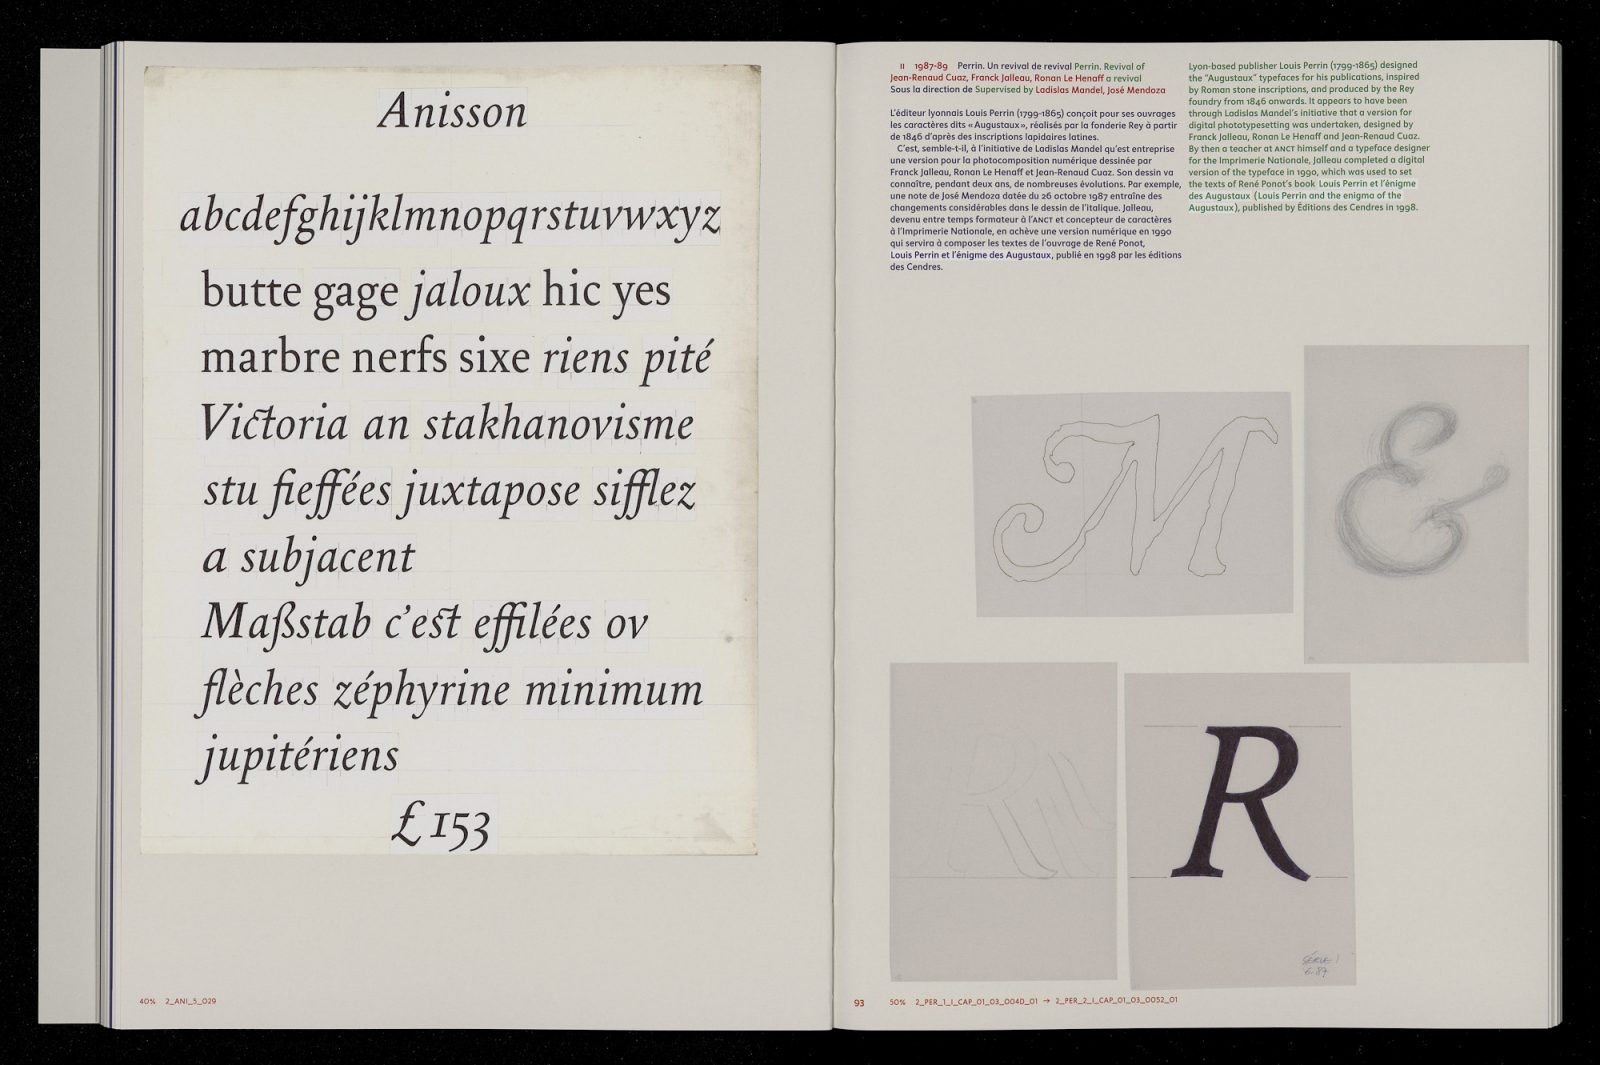 Anisson
abcdefghijklmnopqrstuvwxyz
butte gage jaloux hic yes
marbre nerfs sixe riens pité
Victoria an stakhanovisme
stu fieffées juxtapose sifflez
a subjacent
Maßstab c’est effilées ov
flèches zéphyrine minimum
jupitériens
£153
40% 2_ANI_5_029
II 1987-89 Perrin. Un revival de revival Perrin. Revival of
Jean-Renaud Cuaz, Franck Jalleau, Ronan Le Henaff a revival
Sous la direction de Supervised by Ladislas Mandel, José Mendoza
L’éditeur lyonnais Louis Perrin (1799-1865) conçoit pour ses ouvrages
les caractères dits «Augustaux», réalisés par la fonderie Rey à partir
de 1846 d’après des inscriptions lapidaires latines.
C’est, semble-t-il, à l’initiative de Ladislas Mandel qu’est entreprise
une version pour la photocomposition numérique dessinée par
Franck Jalleau, Ronan Le Henaff et Jean-Renaud Cuaz. Son dessin va
connaître, pendant deux ans, de nombreuses évolutions. Par exemple,
une note de José Mendoza datée du 26 octobre 1987 entraîne des
changements considérables dans le dessin de l’italique. Jalleau,
devenu entre temps formateur à l’ANCT et concepteur de caractères
à l’Imprimerie Nationale, en achève une version numérique en 1990
qui servira à composer les textes de l’ouvrage de René Ponot,
Louis Perrin et l’énigme des Augustaux, publié en 1998 par les éditions
des Cendres.
Lyon-based publisher Louis Perrin (1799-1865) designed
the “Augustaux” typefaces for his publications, inspired
by Roman stone inscriptions, and produced by the Rey
foundry from 1846 onwards. It appears to have been
through Ladislas Mandel’s initiative that a version for
digital phototypesetting was undertaken, designed by
Franck Jalleau, Ronan Le Henaff and Jean-Renaud Cuaz.
By then a teacher at ANCT himself and a typeface designer
for the Imprimerie Nationale, Jalleau completed a digital
version of the typeface in 1990, which was used to set
the texts of René Ponot’s book Louis Perrin et l’énigme
des Augustaux (Louis Perrin and the enigma of the
Augustaux), published by Éditions des Cendres in 1998.
M
&
R
R
SÉRIE 1
6.87
93 50% 2_PER_1_I_CAP_01_03_004D_01 → 2_PER_2_I_CAP_01_03_0052_01